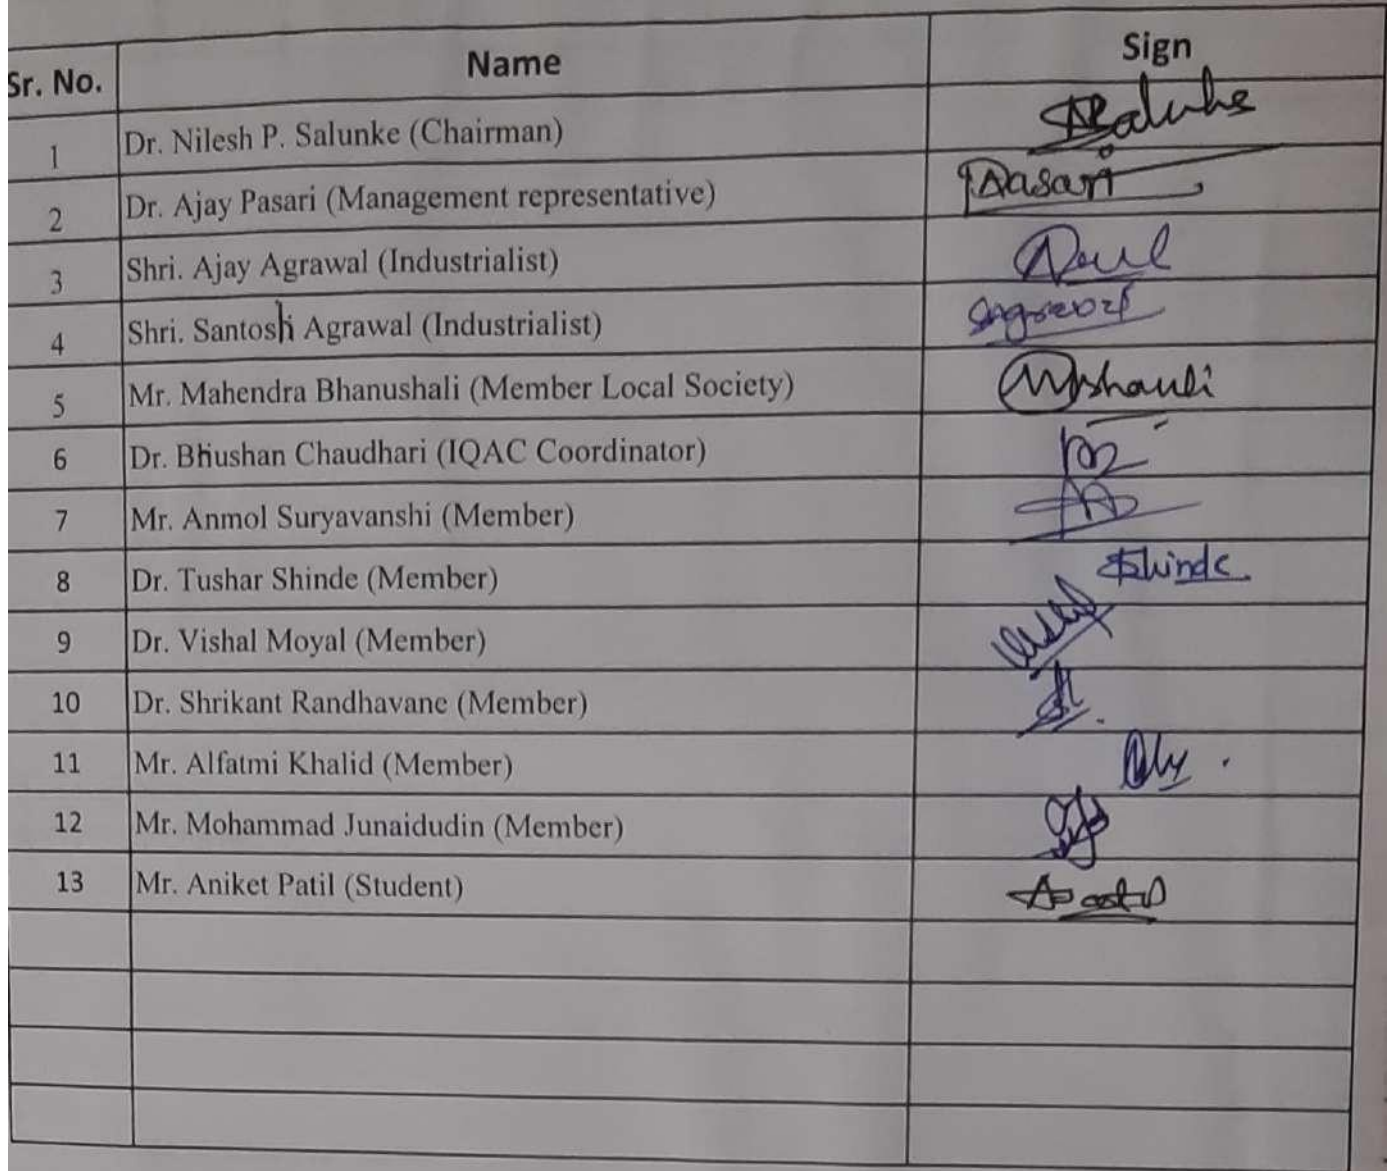 Sr. No. Name Sign
1 Dr. Nilesh P. Salunke (Chairman) Salunke
2 Dr. Ajay Pasari (Management representative) Pasari
3 Shri. Ajay Agrawal (Industrialist)
4 Shri. Santosh Agrawal (Industrialist)
5 Mr. Mahendra Bhanushali (Member Local Society)
6 Dr. Bhushan Chaudhari (IQAC Coordinator)
7 Mr. Anmol Suryavanshi (Member)
8 Dr. Tushar Shinde (Member) Shinde
9 Dr. Vishal Moyal (Member)
10 Dr. Shrikant Randhavane (Member)
11 Mr. Alfatmi Khalid (Member)
12 Mr. Mohammad Junaidudin (Member)
13 Mr. Aniket Patil (Student)